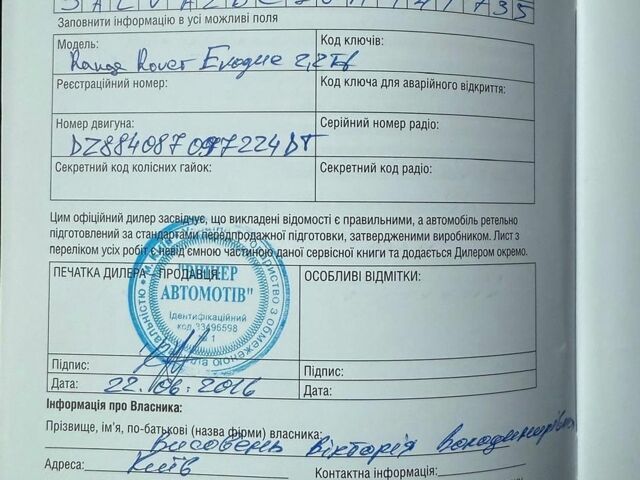 Заповнити інформацію в усі можливі поля
Модель:
Range Rover Evoque 2,2Td
Код ключів:
Реєстраційний номер:
Код ключа для аварійного відкриття:
Номер двигуна:
DZ884087 097224DT
Серійний номер радіо:
Секретний код колісних гайок:
Секретний код радіо:
Цим офіційний дилер засвідчує, що викладені відомості є правильними, а автомобіль ретельно
підготовлений за стандартами передпродажної підготовки, затвердженими виробником. Лист з
переліком усіх робіт є невід'ємною частиною даної сервісної книги та додається Дилером окремо.
ПЕЧАТКА ДИЛЕРА – ПРОДАВЦЯ:
АВТОМОТІВ"
Ідентифікаційний
код 33496598
№ 1
ОСОБЛИВІ ВІДМІТКИ:
Підпис:
Підпис:
Дата: 22.06.2016
Дата:
Інформація про Власника:
Прізвище, ім'я, по-батькові (назва фірми) власника:
Вікторія Володимирівна
Адреса: Київ
Контактна інформація: